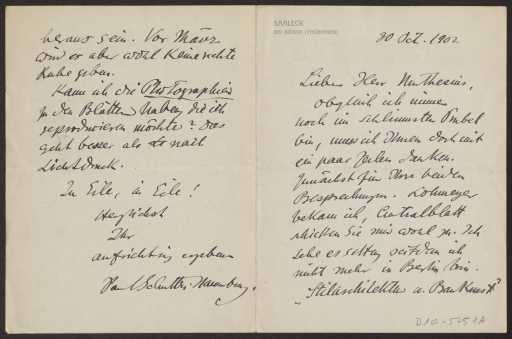 SAALECK
30 Oct. 1902
Lieber Herr Muthesius,
obgleich ich immer
noch im schlimmsten Trubel
bin, muss ich Ihnen doch mit
ein paar Zeilen danken.
Zunächst für Ihre beiden
Besprechungen. Lohmeyer
bekam ich, Centralblatt
schicken Sie mir wohl zu. Ich
sehe es selten seitdem ich
nicht mehr in Berlin bin.
"Stilarchitektur u. Baukunst"
D 1 G - 525 1A
heraus sein. Vor März
wird er aber wohl keine rechte
Ruhe geben.
Kann ich die Photographien
zu den Blättern haben, die ich
reproduzieren möchte? Das
geht besser als nach
Lichtdruck.
In Eile, in Eile!
Herzlichst
Ihr
aufrichtig ergebener
Paul Schultze-Naumburg.